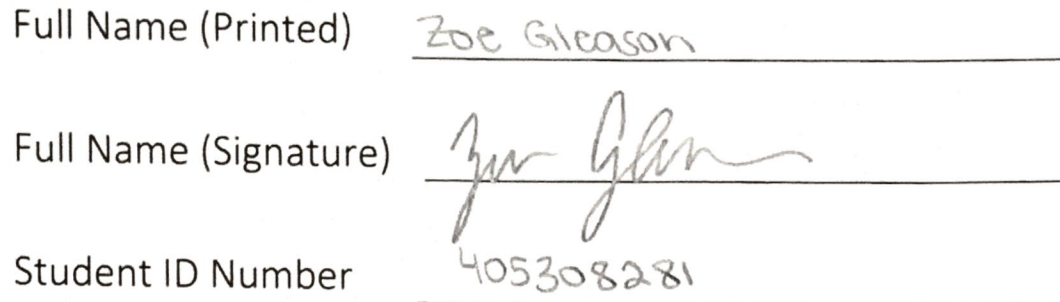 Full Name (Printed) Zoe Gleason
Full Name (Signature) Zoe Gleason
Student ID Number 405308281